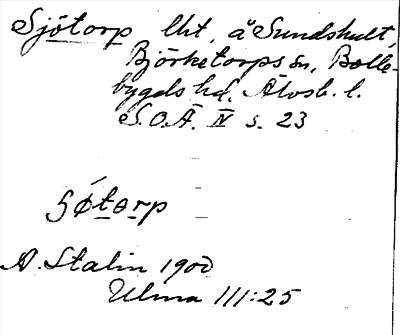 Sjötorp lht, å Sundshult,
Björketorps sn, Bolle-
bygds hd, Älvsb. l.
S.O.Ä. IV s. 23
A. Stalin 1900
Ulma 111:25